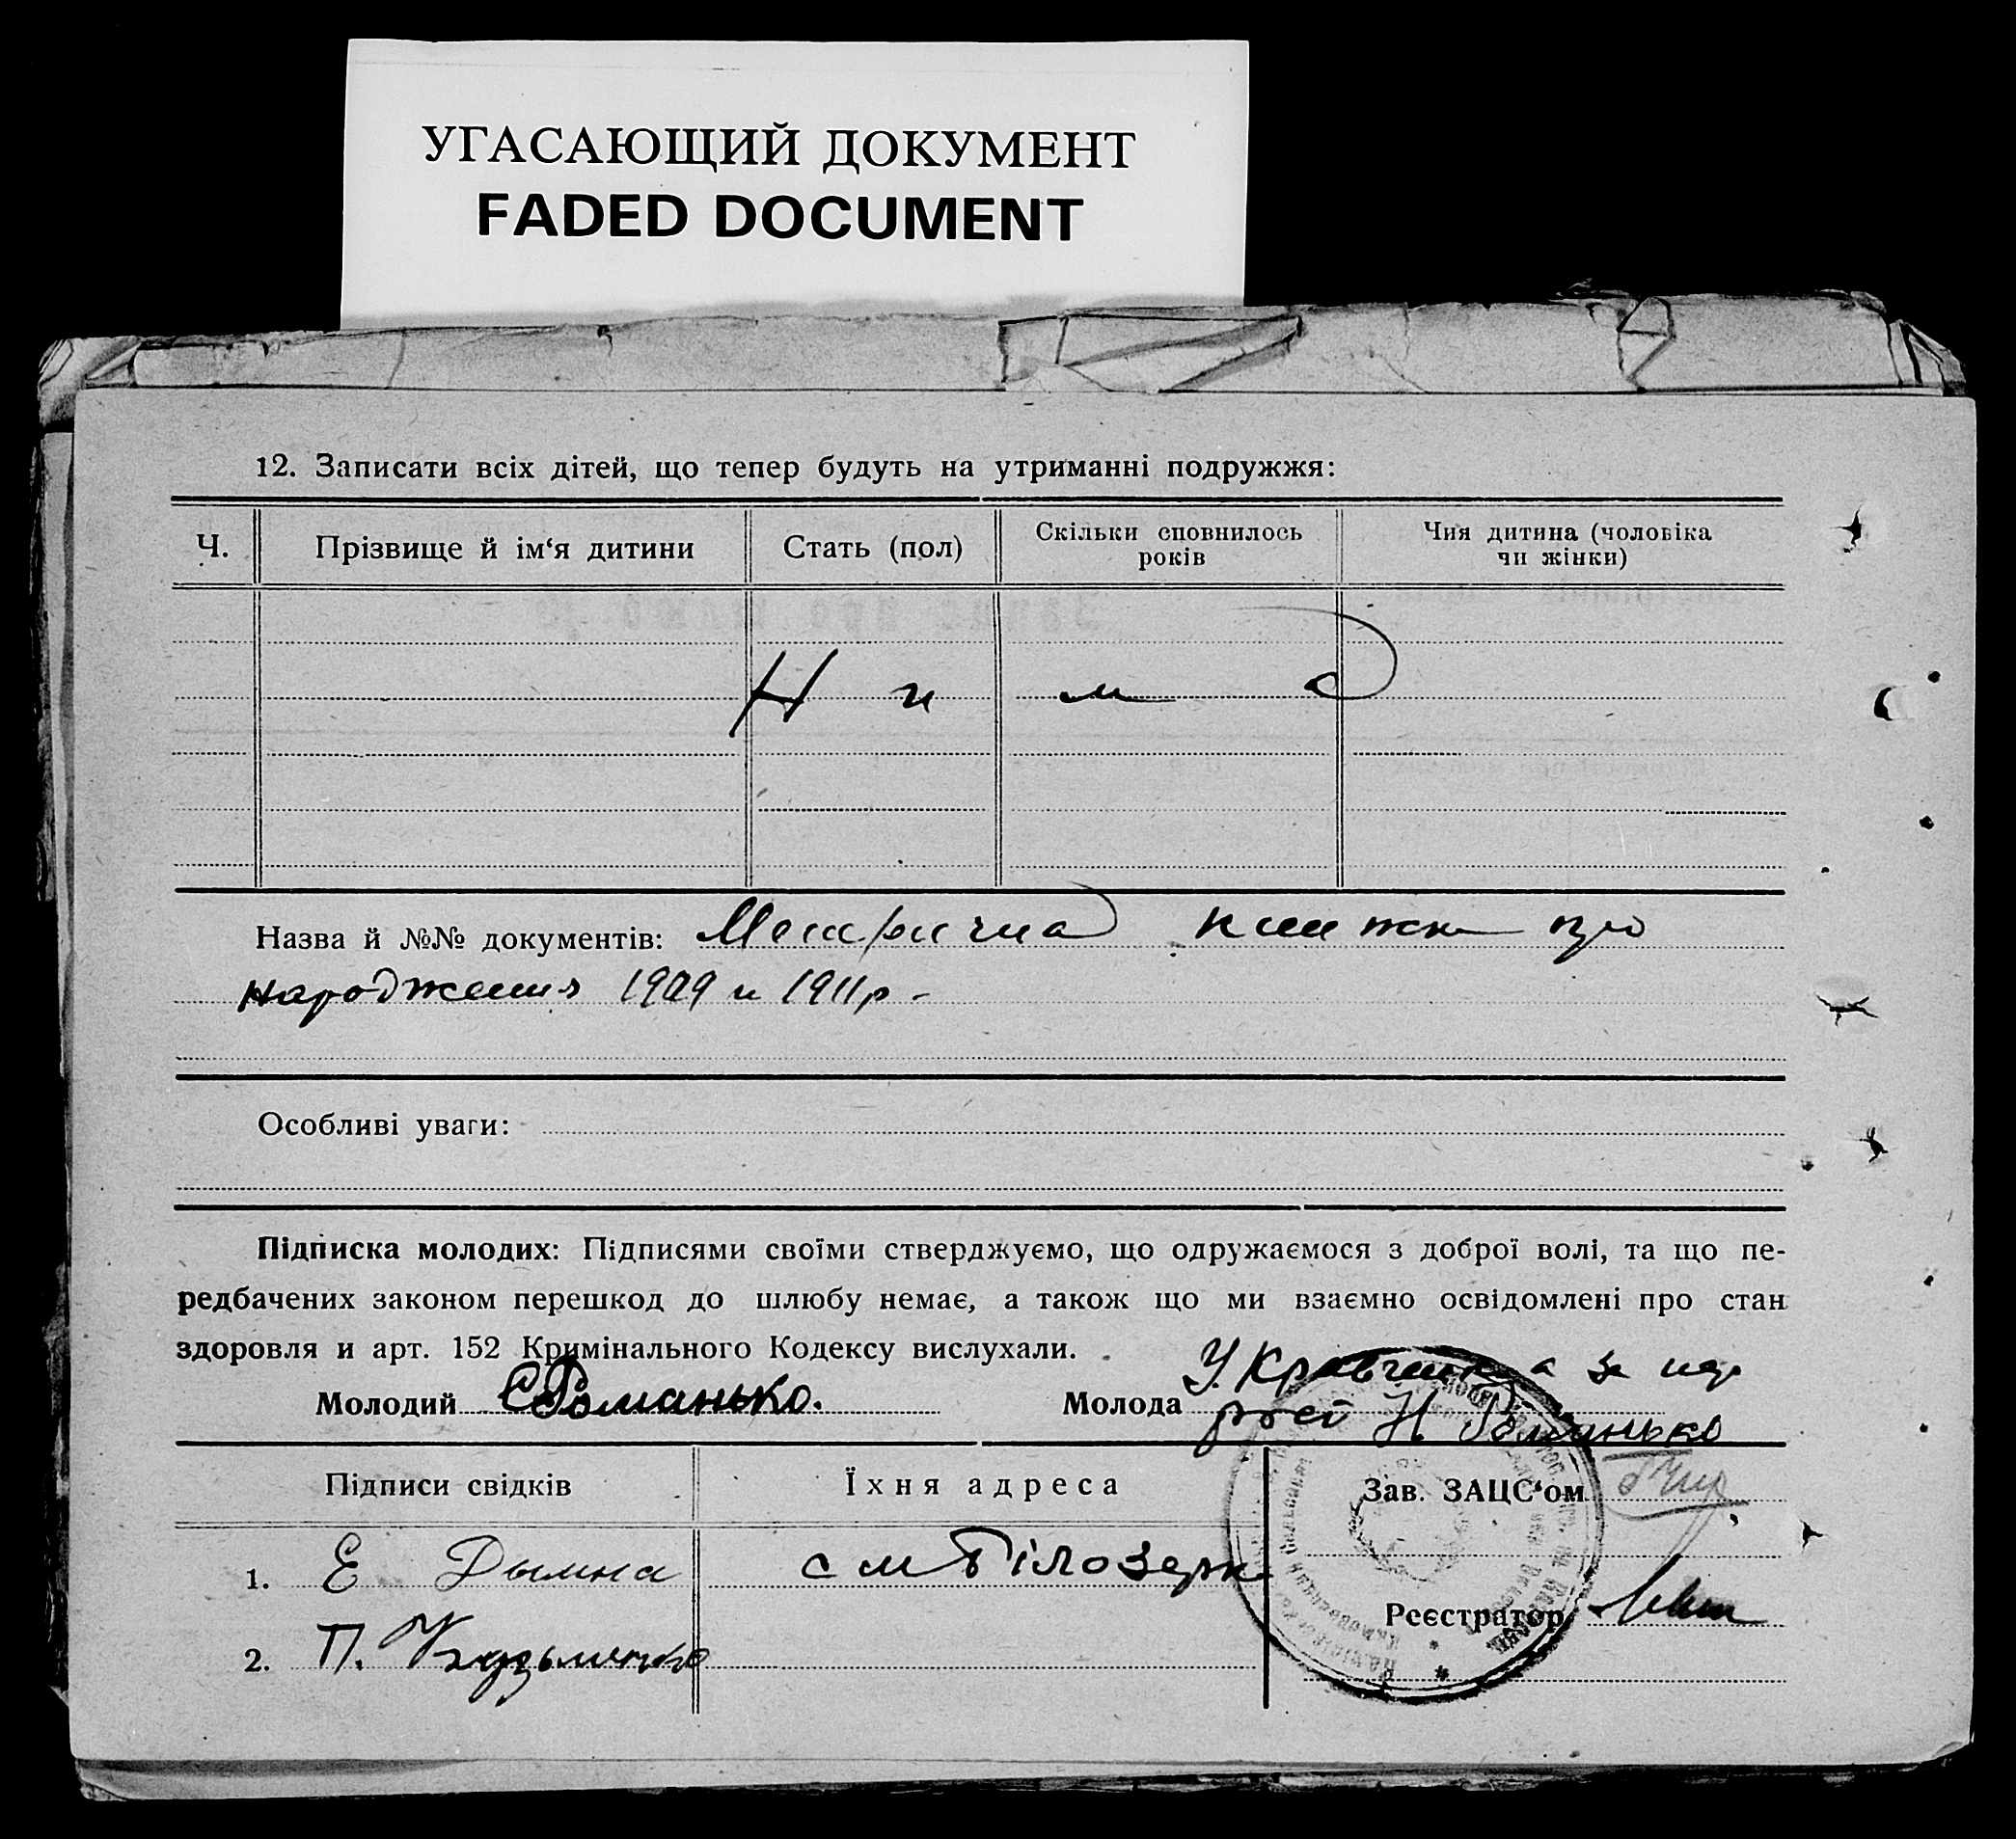 УГАСАЮЩИЙ ДОКУМЕНТ
FADED DOCUMENT
12. Записати всіх дітей, що тепер будуть на утриманні подружжя:
Ч.
Прізвище й ім‘я дитини
Стать (пол)
Скільки сповнилось
років
Чия дитина (чоловіка
чи жінки)
Нима
Назва й №№ документів: Метрична книжка про
народження 1909 и 1911р -
Особливі уваги:
Підписка молодих: Підписями своїми стверджуємо, що одружаємося з доброї волі, та що пе-
редбачених законом перешкод до шлюбу немає, а також що ми взаємно освідомлені про стан
здоровля и арт. 152 Кримінального Кодексу вислухали.
Молодий Романько.
Молода У. Кравченк а за
Н Романько
Підписи свідків
Їхня адреса
Зав. ЗАЦС‘ом
1. Е Дымна
с м Білозерк
Реєстратор
2. П. Кузьменко